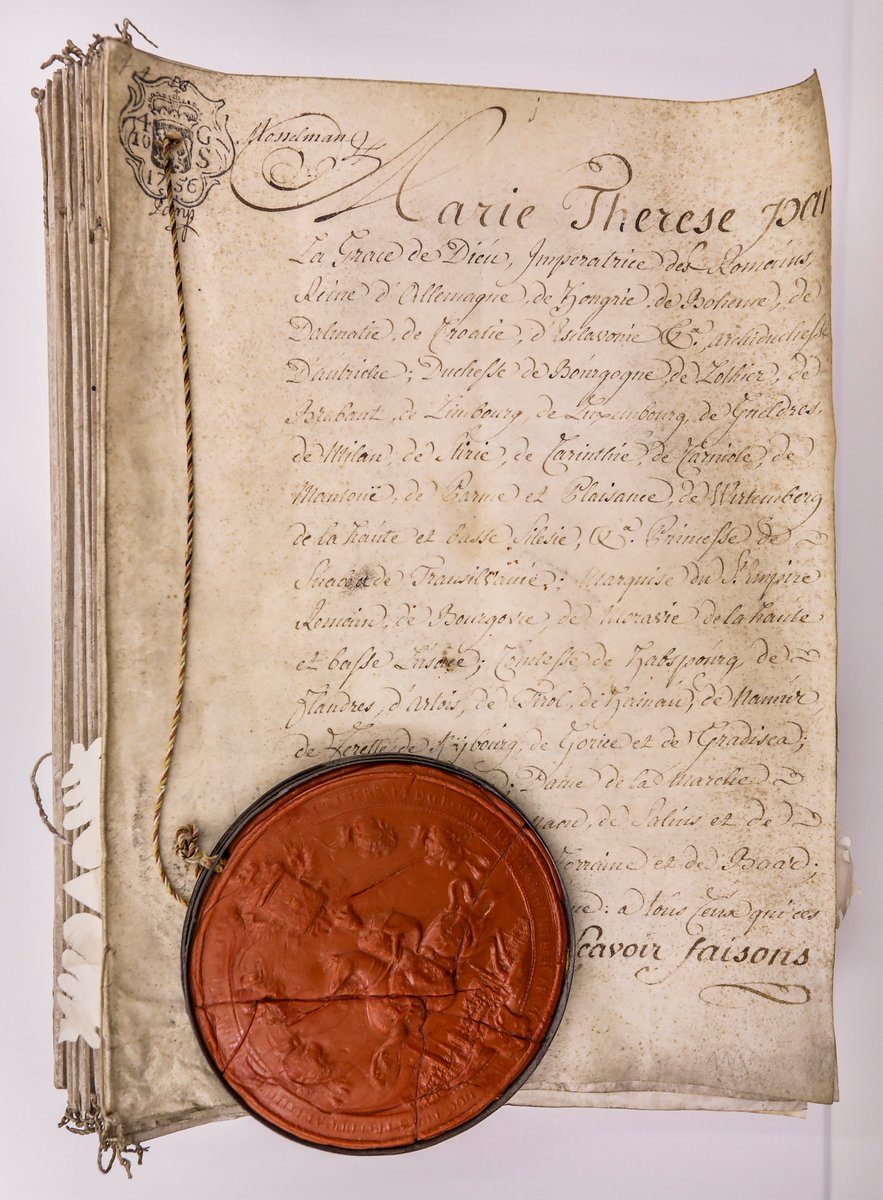 4 C
10 S
1756
Mosselman
Marie Therese par
La Grace de Dieu, Imperatrice des Romains,
Reine d'Allemagne, de Hongrie, de Boheme, de
Dalmatie, de Croatie, d'Esclavonie &a. archiduchesse
D'autriche; Duchesse de Bourgogne, de Lothier, de
Brabant, de Limbourg, de Luxembourg, de Gueldres,
de Milan, de Stirie, de Carinthie, de Carniole, de
Mantoüe, de Parme et Plaisance, de Wirtemberg
de la haute et basse Silesie, &a. Princesse de
Suabe et de Transilvanie; Marquise du St. Empire
Romain, de Bourgovie, de Moravie de la haute
et basse Lusace; Comtesse de Habspourg, de
flandres, d'artois, de Tirol, de Hainau, de Namur,
de Ferette de Kybourg, de Gorice et de Gradisca;
; Dame de la marche
de Salins et de
Lorraine et de Baar;
: a tous ceux qui ces
scavoir faisons